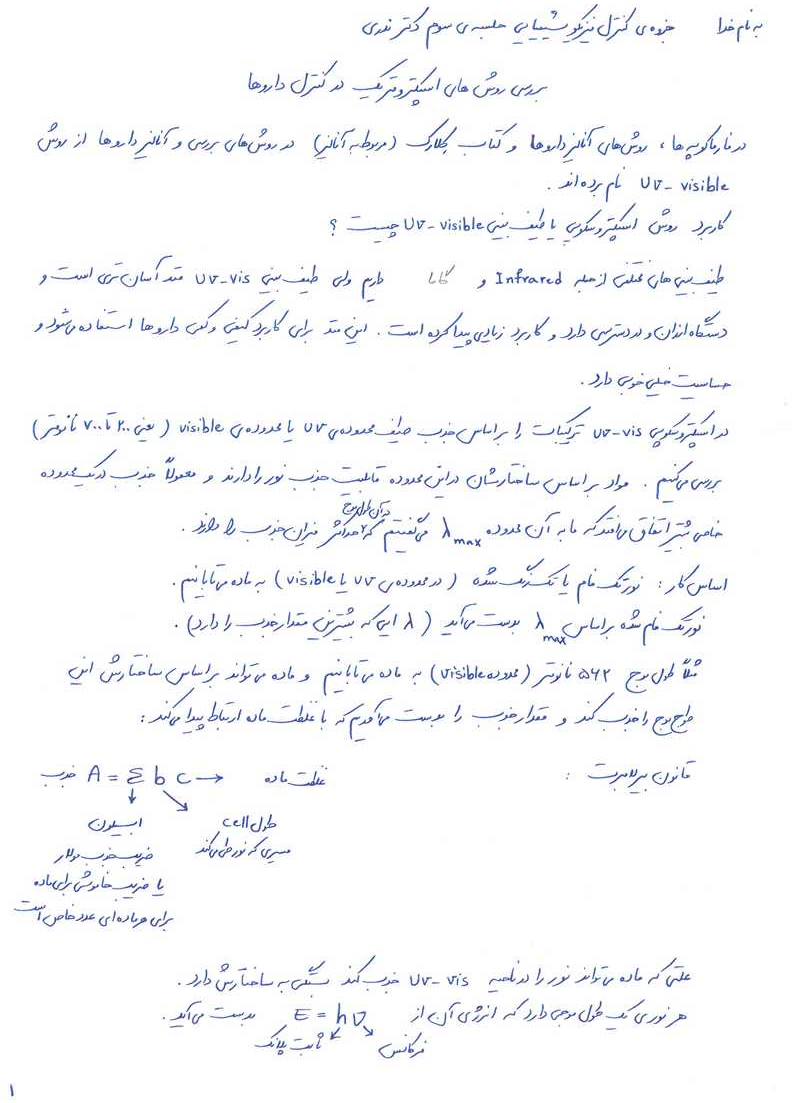 به نام خدا جزوه ی کنترل فیزیکوشیمیایی جلسه ی سوم دکتر نذری
بررسی روش های اسپکترومتریک در کنترل داروها
در فارماکوپه ها ، روش های آنالیز داروها و کتاب کلارک (مربوط به آنالیز) در روش های بررسی و آنالیز داروها از روش
UV - visible نام برده اند .
کاربرد روش اسپکتروسکوپی یا طیف بینی UV - visible چیست ؟
طیف بینی های مختلفی از جمله Infrared و گاما داریم ولی طیف بینی UV-vis متد آسان تری است و
دستگاه ارزان و در دسترسی دارد و کاربرد زیادی پیدا کرده است . این متد برای کاربرد کیفی و کمی داروها استفاده می شود و
حساسیت خیلی خوبی دارد .
در اسپکتروسکوپی UV-vis ترکیبات را بر اساس جذب طیف محدوده ی UV یا محدوده ی visible ( یعنی ۲۰۰ تا ۷۰۰ نانومتر)
بررسی می کنیم . مواد بر اساس ساختارشان در این محدوده قابلیت جذب نور را دارند و معمولاً جذب در یک محدوده
خاصی بیشتر اتفاق می افتد که ما به آن محدوده λ max می گفتیم که در آن طول موج حداکثر میزان جذب را دارند .
اساس کار : نور تک فام یا تک رنگ شده ( در محدوده ی UV یا visible ) به ماده می تابانیم .
نور تک فام شده بر اساس λ max بدست می آید ( λ ایی که بیشترین مقدار جذب را دارد ) .
مثلاً طول موج ۵۶۲ نانومتر (محدوده visible) به ماده می تابانیم و ماده می تواند بر اساس ساختارش این
طول موج را جذب کند و مقدار جذب را بدست می آوریم که با غلظت ماده ارتباط پیدا می کند :
قانون بیرلامبرت : غلظت ماده ← A = Ɛ b c جذب
طول cell اپسیلون
مسیری که نور طی می کند ضریب جذب مولار
یا ضریب خاموشی برای ماده
برای هر ماده ای عدد خاصی است
علتی که ماده می تواند نور را در ناحیه UV-vis جذب کند بستگی به ساختارش دارد .
هر نوری یک طول موجی دارد که انرژی آن از E = hυ بدست می آید .
فرکانس ثابت پلانک
۱